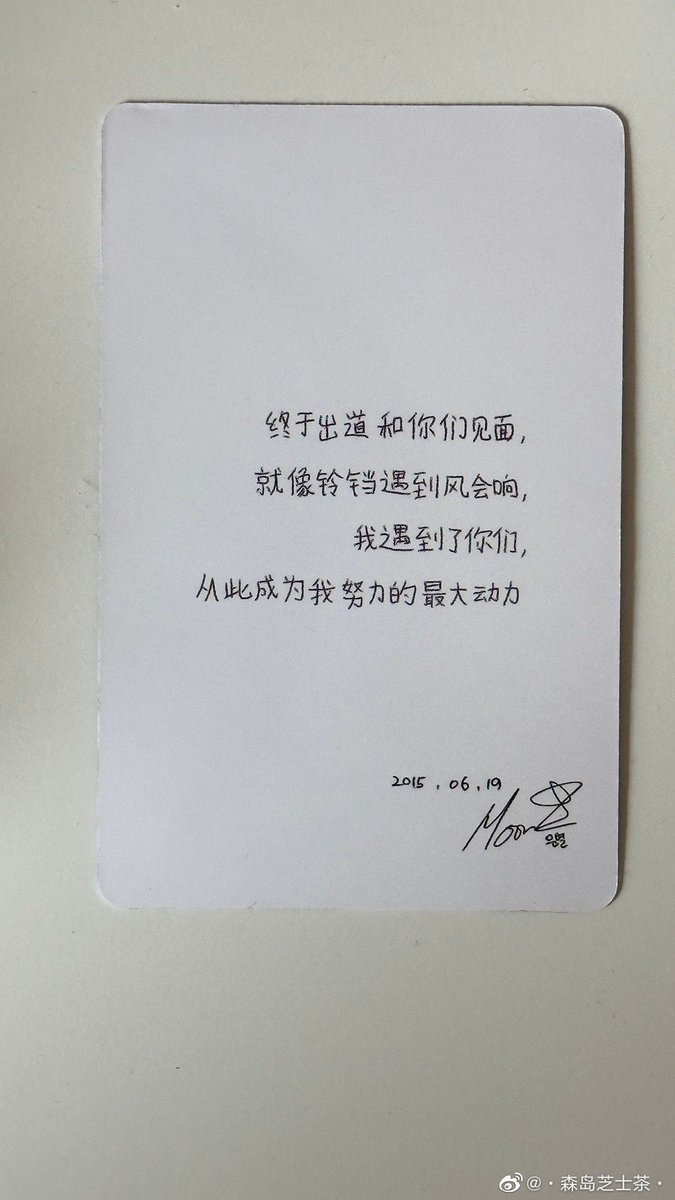 终于出道 和你们见面,
就像铃铛遇到风会响,
我遇到了你们,
从此成为我努力的最大动力
2015.06.19
Moon
@·森岛芝士茶·